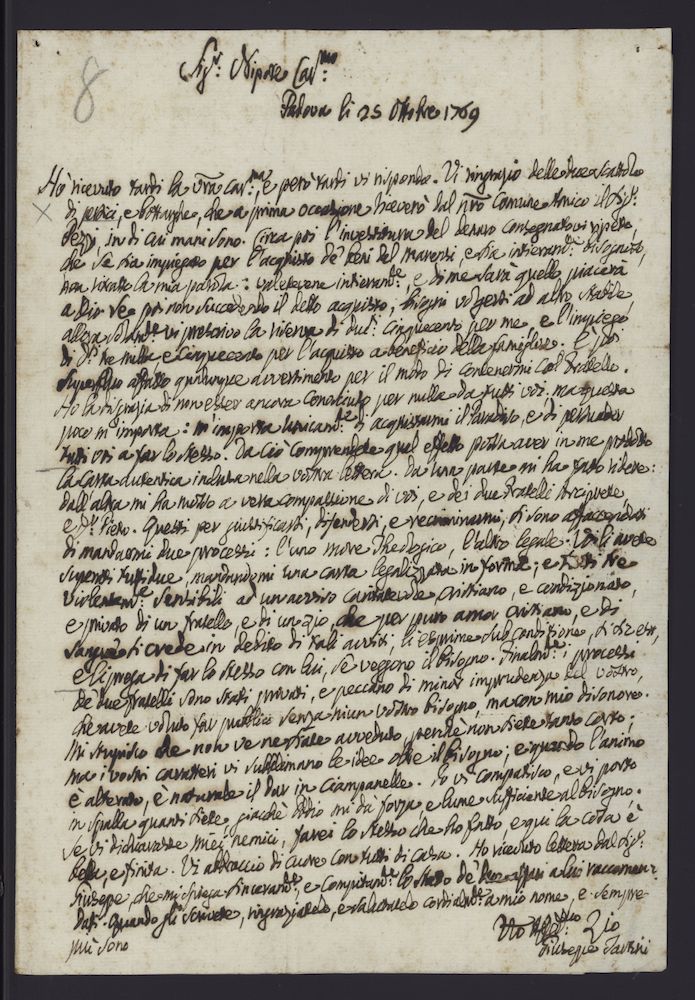 8
Sig.r Nipote Car.mo
Padova li 25 Ottobre 1769
Ho ricevuto tardi la v̅ra car.ma, e però tardi vi rispondo. Vi ringrazio delle due scattole
di persici, e bottarghe, che a prima occasione riceverò dal n̅ro Comune Amico il Sig.r
in di cui mani sono. Circa poi l'investitura del denaro consegnatovi vi
che se sia impiegato per l'acquisto de' beni del e sia intierand.e bisogno,
non ritratto la mia parola: valetevene intierand.e, e di me sarà quello, piacerà
a Dio. Se poi non succedendo il detto acquisto, bisogni volgersi ad altro stabile,
allora soland.e vi prescrivo la riserva di duc.i cinquecento per me, e l'impiego
di d.i tre mille e cinquecento per l'acquisto a beneficio della famiglia. È poi
superfluo affatto qualunque avvertimento per il modo di contenermi col fratello.
Ho la disgrazia di non esser ancora conosciuto per nulla da tutti voi: ma questo
poco m'importa: m'importa unicand.e di acquistarmi il Paradiso, e di persuader
tutti voi a far lo stesso. Da ciò comprendete qual effetto possa aver in me prodotto
la carta autentica inclusa nella vostra lettera. Da una parte mi ha fatto ridere:
dall'altra mi ha mosso a vera compassione di voi, e dei due fratelli Arciprete,
e D.n Pietro. Questi per giustificarsi, difendersi, e recriminarmi, si sono affaccendati
di mandarmi due processi: l'uno more Theologico, l'altro legale. Voi li avete
superati tutti due, mandandomi una carta legalizzata in forma; e tutti tre
violentand.e sensibili ad un avviso caritatevole, cristiano, e condizionato,
e privato di un fratello, e di un zio, che per puro amor cristiano, e di
sangue si crede in debito di tali avvisi, li esprime sub conditione,
e li prega di far lo stesso con lui, se vegono il bisogno. Finalnd.e i processi
de' due fratelli sono stati privati, e peccano di minor imprudenza del vostro,
che avete voluto far pubblico senza niun vostro bisogno, ma con mio disonore.
Mi stupisco che non ve ne siate avveduto, perché non siete tanto corto;
ma i vostri caratteri vi sublimano le idee oltre il bisogno; e quando l'animo
è alterato, è naturale il dar in Ciampanelle. Io vi compatisco, e vi porto
in spalla quanti siete, giacchè Iddio mi dà forza, e lume sufficiente al bisogno.
Se vi dichiaraste miei nemici, farei lo stesso che ho fatto, e qui la cosa è
bella, e finita. Vi abbraccio di cuore con tutti di casa. Ho ricevuto lettera dal Sig.r
Giuseppe che mi spiega sincerand.e, e compitand.e lo stato de' due affari a lui raccoman-
dati. Quando gli scrivete, ringraziatelo, e salutatelo cordialnd.e a mio nome, e sempre
più sono
V̅ro Aff.mo Zio
Giuseppe Tartini